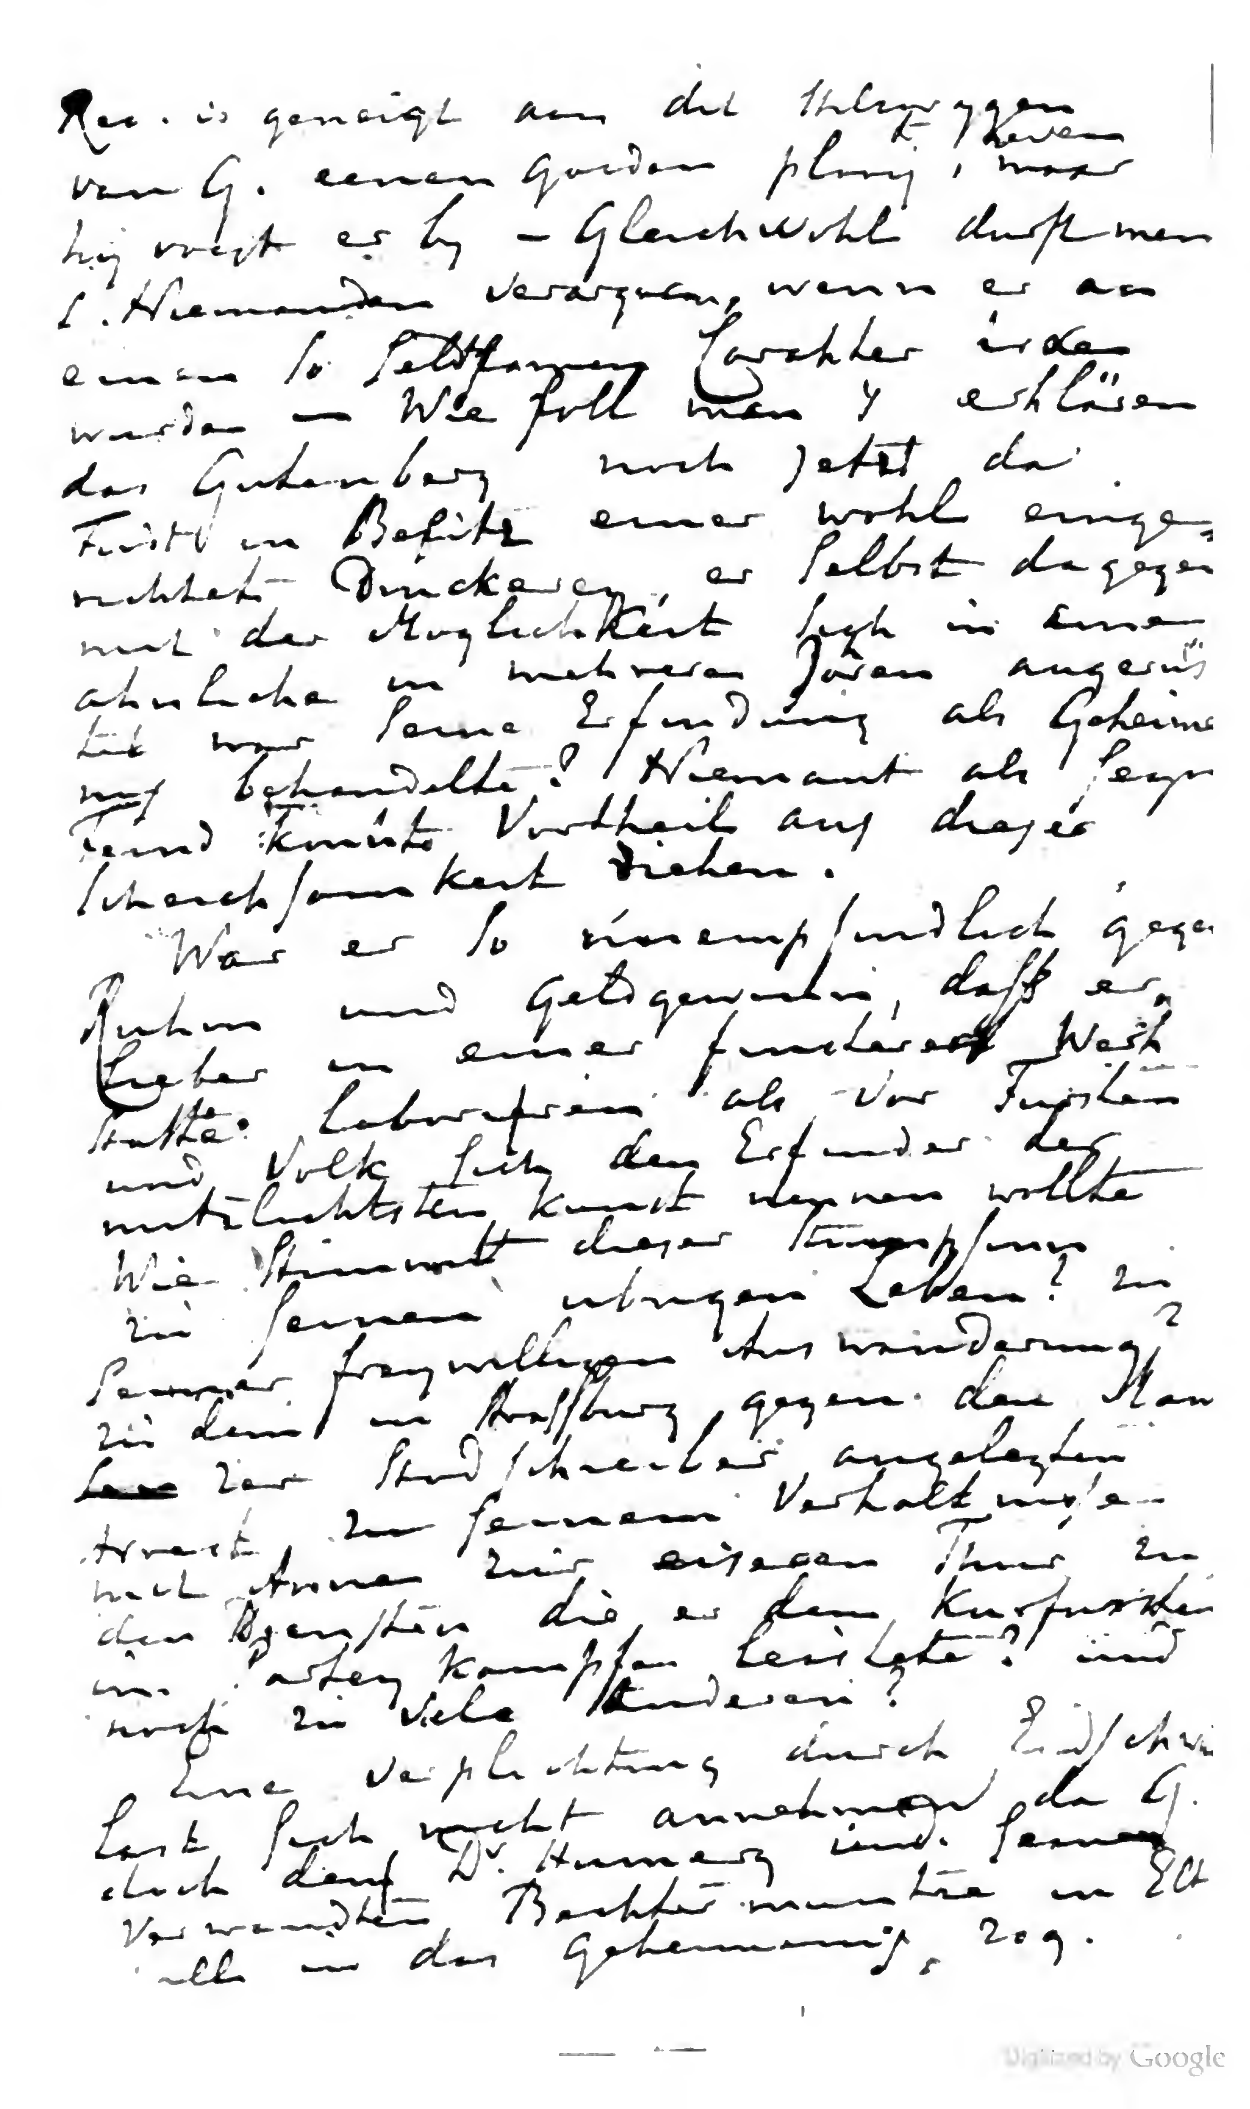 Rec. is geneigt aan dit stilzwygen
van G. eenen goeden plooij te geven, maar
hij voegt er by – Gleichwohl durft men
s. Niemanden verarguen, wenn er an
einen so seltsamen Carakter irden
wurden – Wie soll man y erklären
das Gutenberg noch jetzt da
Fust in Besitz einer wohl einge=
richtet Druckerey, er selbst dagegen
mit der Moglichkeit sich in einen
ahnliche in mehreren Joren
war seine Erfindung als Geheime
nis behandelte? Niemant als seyn
Feind konnte Vortheil aus dieser
ziehen.
War er so unempfindlich gegen
Ruhm und Geldgewinn, dass er
lieber in einer finsteren Werk
statte laboriren als vor Fursten
und Volk sich den Erfinder der
nutzlichtsten Kunst nennen wollte
Wie stimmt dieser Stumpfsinn
zu seinem ubrigen Leben? zu
seiner freywilligen Auswanderung?
zu dem in Strassburg gegen den Main
zer Stadschreiber angelegten
Arrest, zu seinem Verhaltnisse
mit Annen zur eiseren Thur zu
den Diensten die er dem Kurfursten
im Parteykampfen leistete? und
noch zu viele anderen?
Eine verplichtung durch Eidschwur
last sich nicht annehmen da G.
doch den Dr. Humery und seinen
Verwandten Bechtermuntze in Elt
ville in das Geheimnis zog.
Digitized by Google